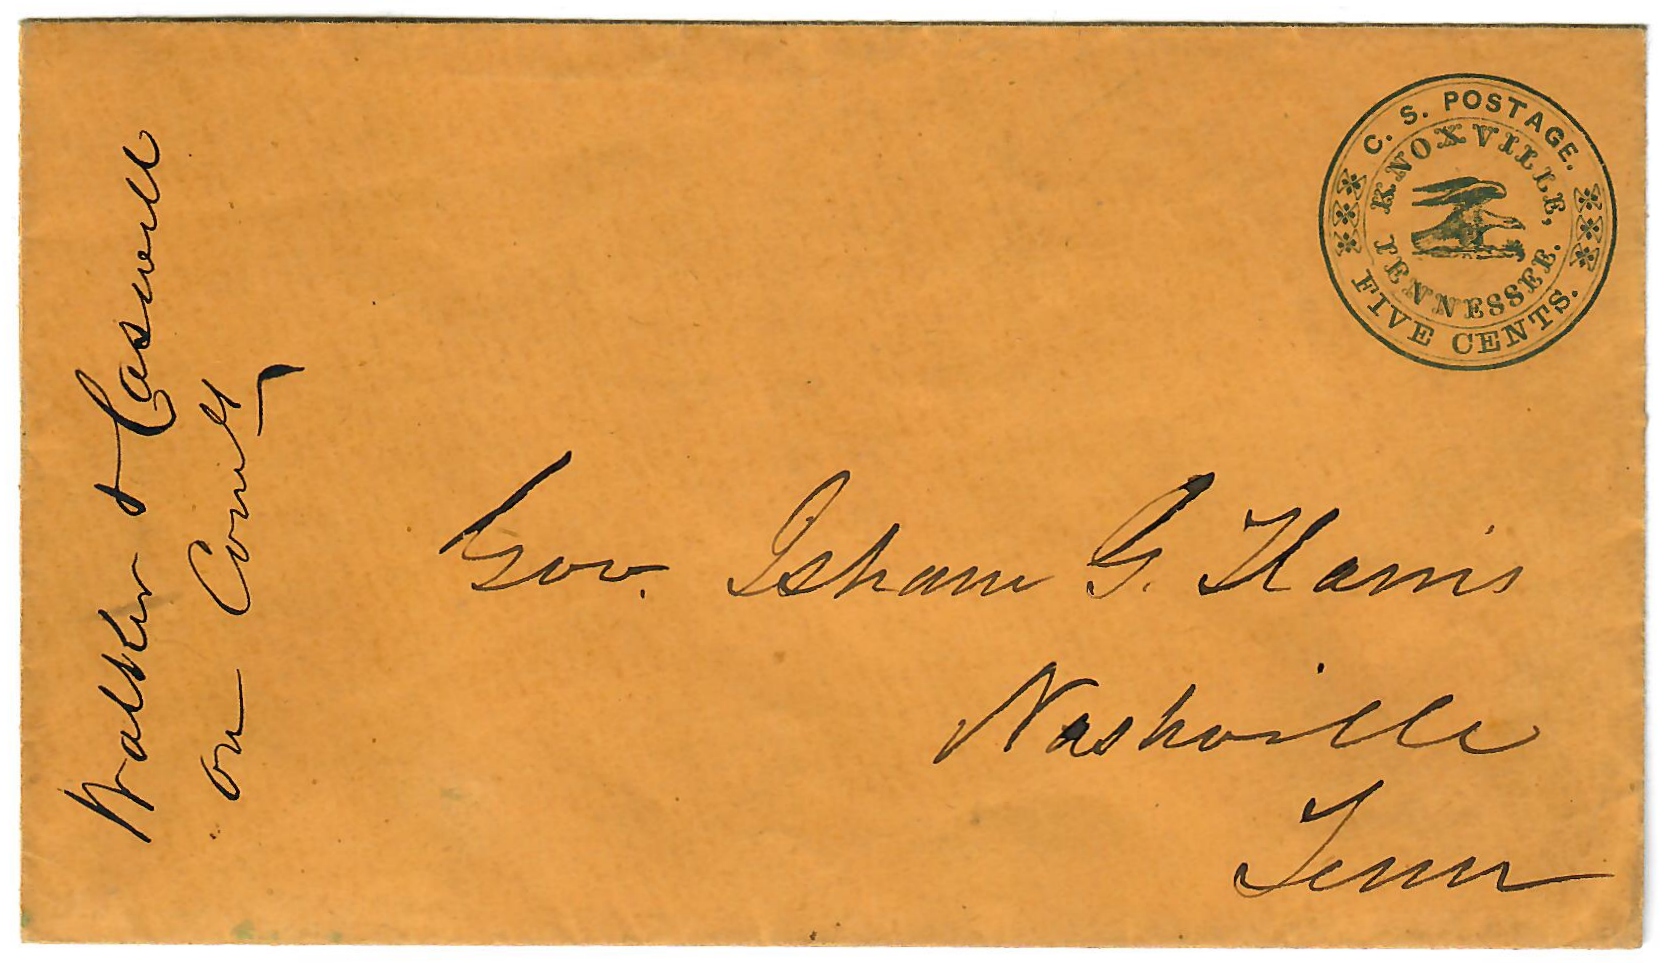 C. S. POSTAGE.
KNOXVILLE,
TENNESSEE.
FIVE CENTS.
Walker & Caswell
on
Gov. Isham G. Harris
Nashville
Tenn